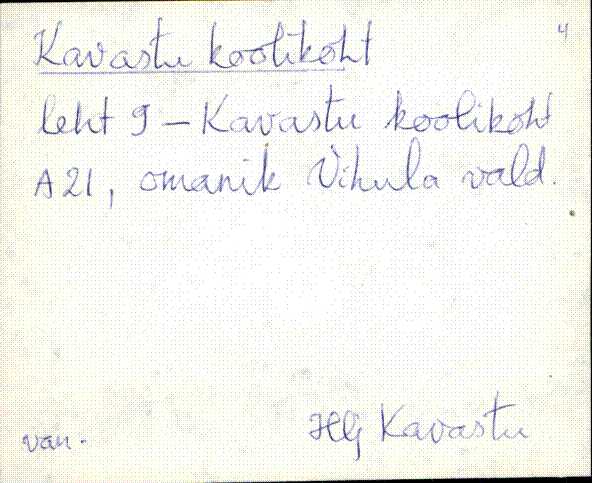 4
Kavastu koolikoht
leht 9 – Kavastu koolikoht
A 21, omanik Vihula vald.
van. HlJ Kavastu